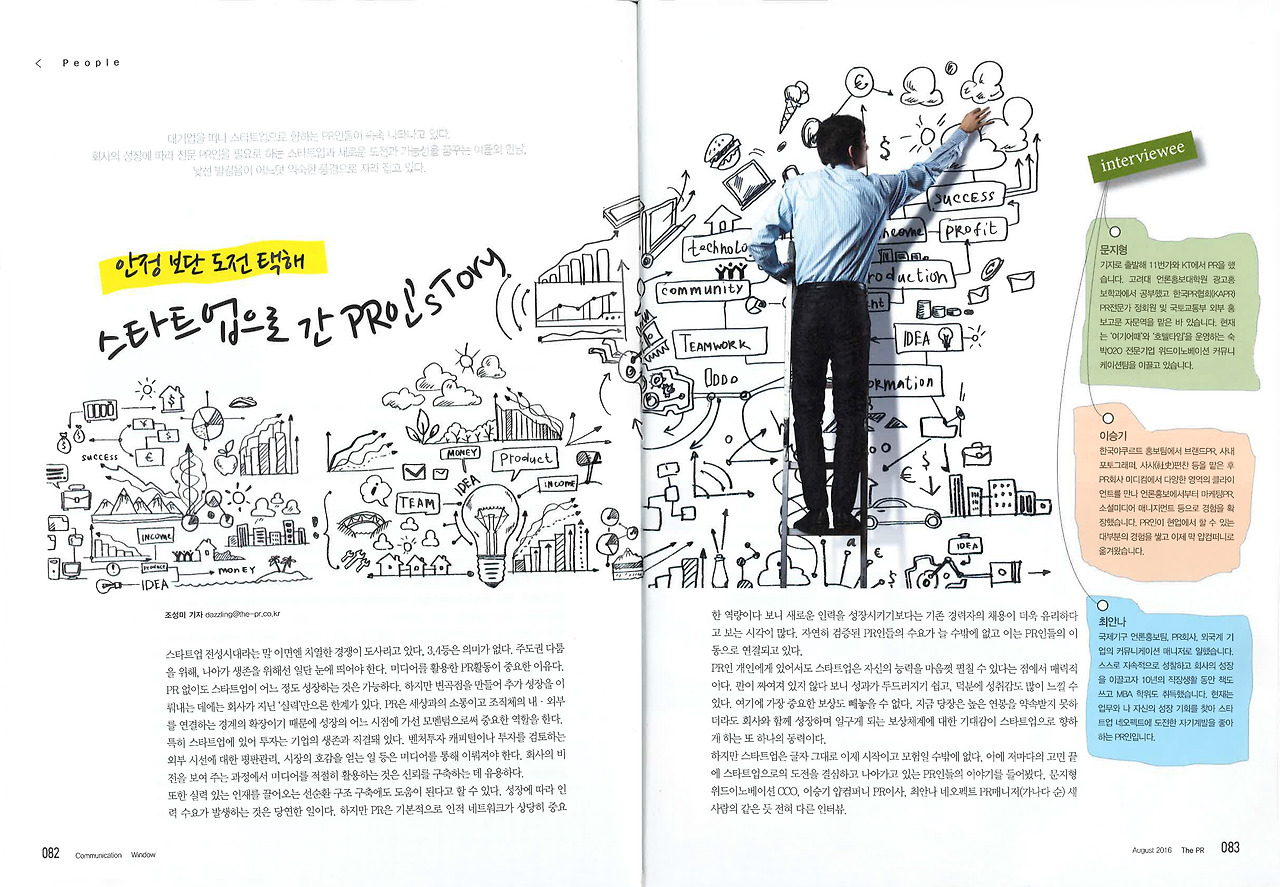 < People
대기업을 떠나 스타트업으로 향하는 PR인들이 속속 나타나고 있다.
회사의 성장에 따라 전문 PR인을 필요로 하는 스타트업과 새로운 도전과 가능성을 꿈꾸는 이들의 만남.
낯선 발걸음이 어느덧 익숙한 풍경으로 자리 잡고 있다.
안정 보단 도전 택해
스타트업으로 간 PR인's TORY
SUCCESS
INCOME
MONEY
IDEA
TEAM
MONEY
IDEA
Product
INCOME
technolo
community
TEAMWORK
SUCCESS
income
profit
production
IDEA
ormation
IDEA
조성미 기자 dazzling@the-pr.co.kr
스타트업 전성시대라는 말 이면엔 치열한 경쟁이 도사리고 있다. 3,4등은 의미가 없다. 주도권 다툼
을 위해, 나아가 생존을 위해선 일단 눈에 띄어야 한다. 미디어를 활용한 PR활동이 중요한 이유다.
PR 없이도 스타트업이 어느 정도 성장하는 것은 가능하다. 하지만 변곡점을 만들어 추가 성장을 이
뤄내는 데에는 회사가 지닌 '실력'만으론 한계가 있다. PR은 세상과의 소통이고 조직체의 내·외부
를 연결하는 경계의 확장이기 때문에 성장의 어느 시점에 가선 모멘텀으로써 중요한 역할을 한다.
특히 스타트업에 있어 투자는 기업의 생존과 직결돼 있다. 벤처투자 캐피털이나 투자를 검토하는
외부 시선에 대한 평판관리, 시장의 호감을 얻는 일 등은 미디어를 통해 이뤄져야 한다. 회사의 비
전을 보여 주는 과정에서 미디어를 적절히 활용하는 것은 신뢰를 구축하는 데 유용하다.
또한 실력 있는 인재를 끌어오는 선순환 구조 구축에도 도움이 된다고 할 수 있다. 성장에 따라 인
력 수요가 발생하는 것은 당연한 일이다. 하지만 PR은 기본적으로 인적 네트워크가 상당히 중요
한 역량이다 보니 새로운 인력을 성장시키기보다는 기존 경력자의 채용이 더욱 유리하다
고 보는 시각이 많다. 자연히 검증된 PR인들의 수요가 늘 수밖에 없고 이는 PR인들의 이
동으로 연결되고 있다.
PR인 개인에게 있어서도 스타트업은 자신의 능력을 마음껏 펼칠 수 있다는 점에서 매력적
이다. 판이 짜여져 있지 않다 보니 성과가 두드러지기 쉽고, 덕분에 성취감도 많이 느낄 수
있다. 여기에 가장 중요한 보상도 빼놓을 수 없다. 지금 당장은 높은 연봉을 약속받지 못하
더라도 회사와 함께 성장하며 일구게 되는 보상체계에 대한 기대감이 스타트업으로 향하
게 하는 또 하나의 동력이다.
하지만 스타트업은 글자 그대로 이제 시작이고 모험일 수밖에 없다. 이에 저마다의 고민 끝
에 스타트업으로의 도전을 결심하고 나아가고 있는 PR인들의 이야기를 들어봤다. 문지형
위드이노베이션 CCO, 이승기 얍컴퍼니 PR이사, 최안나 네오펙트 PR매니저(가나다 순) 세
사람의 같은 듯 전혀 다른 인터뷰.
interviewee
문지형
기자로 출발해 11번가와 KT에서 PR을 했
습니다. 고려대 언론홍보대학원 광고홍
보학과에서 공부했고 한국PR협회(KAPR)
PR전문가 정회원 및 국토교통부 외부 홍
보고문 자문역을 맡은 바 있습니다. 현재
는 '여기어때'와 '호텔타임'을 운영하는 숙
박O2O 전문기업 위드이노베이션 커뮤니
케이션팀을 이끌고 있습니다.
이승기
한국야쿠르트 홍보팀에서 브랜드PR, 사내
포토그래퍼, 사사(社史)편찬 등을 맡은 후
PR회사 미디컴에서 다양한 영역의 클라이
언트를 만나 언론홍보에서부터 마케팅PR,
소셜미디어 매니지먼트 등으로 경험을 확
장했습니다. PR인이 현업에서 할 수 있는
대부분의 경험을 쌓고 이제 막 얍컴퍼니로
옮겨왔습니다.
최안나
국제기구 언론홍보팀, PR회사, 외국계 기
업의 커뮤니케이션 매니저로 일했습니다.
스스로 지속적으로 성찰하고 회사의 성장
을 이끌고자 10년의 직장생활 동안 책도
쓰고 MBA 학위도 취득했습니다. 현재는
업무와 나 자신의 성장 기회를 찾아 스타
트업 네오펙트에 도전한 자기계발을 좋아
하는 PR인입니다.
082 Communication Window
August 2016 The PR 083